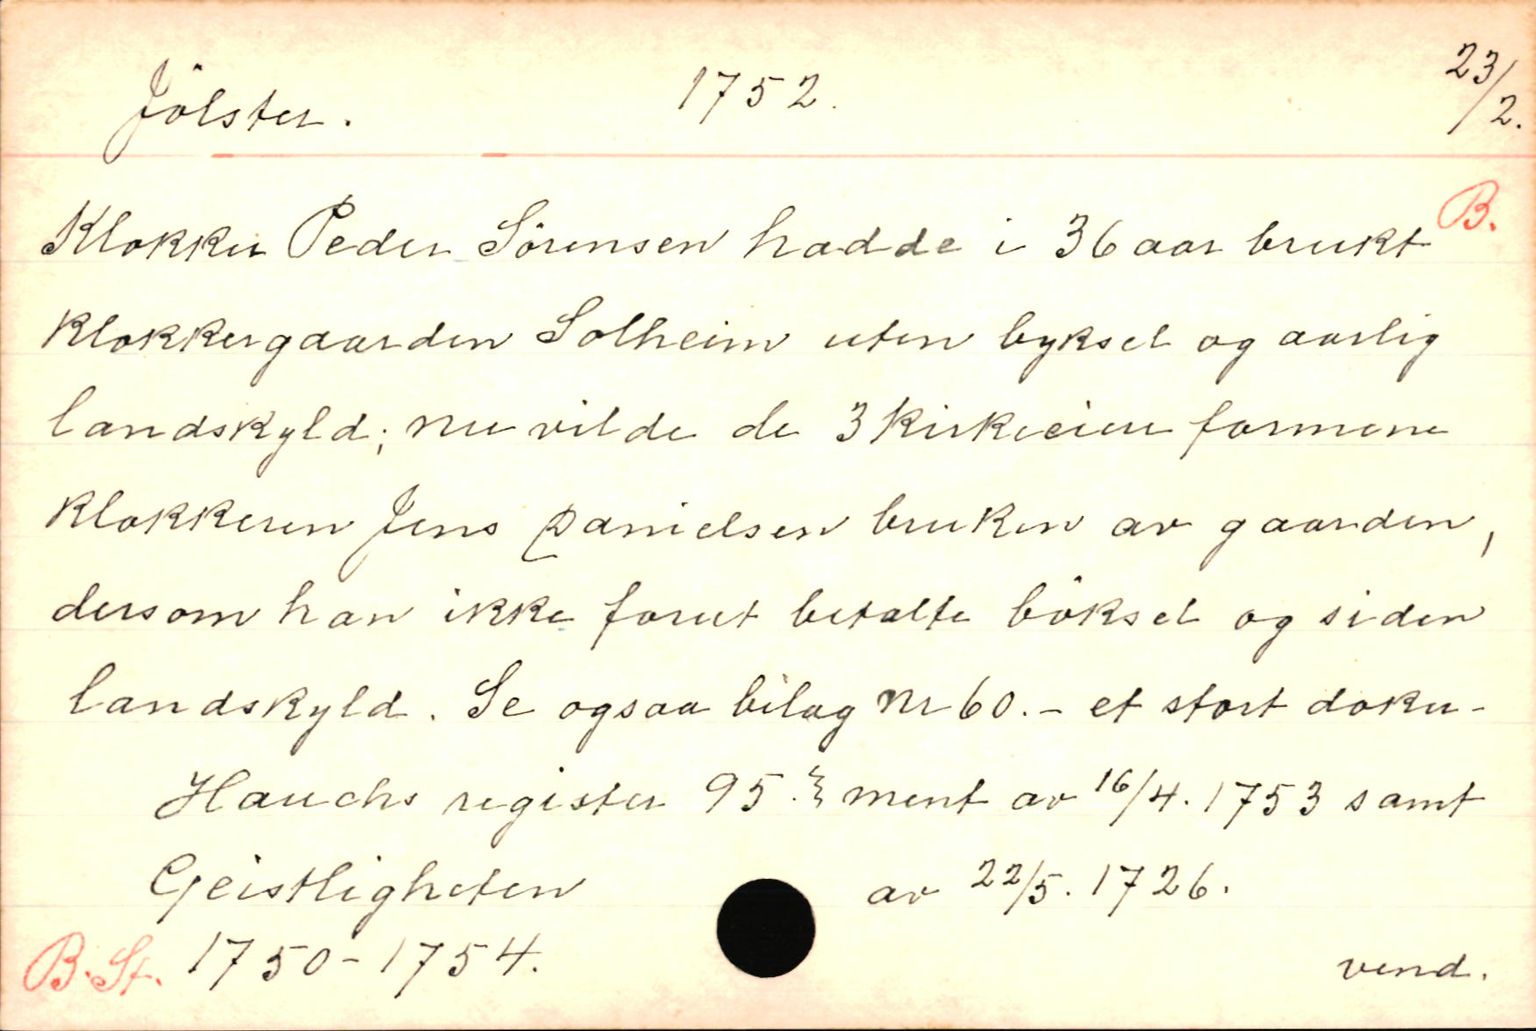 Jölster. 1752. 23/2.
B.
Klokker Peder Sörensen hadde i 36 aar brukt
klokkergaarden Solheim uten byksel og aarlig
landskyld; nu vilde de 3 kirkeeiere formene
klokkeren Jens Danielsen bruken av gaarden,
dersom han ikke forut betalte böksel og siden
landskyld. Se ogsaa bilag nr 60. - et stort doku-
Hauchs register 95. ment av 16/4. 1753 samt
Geistligheten av 22/5. 1726.
B. St. 1750-1754. vend.